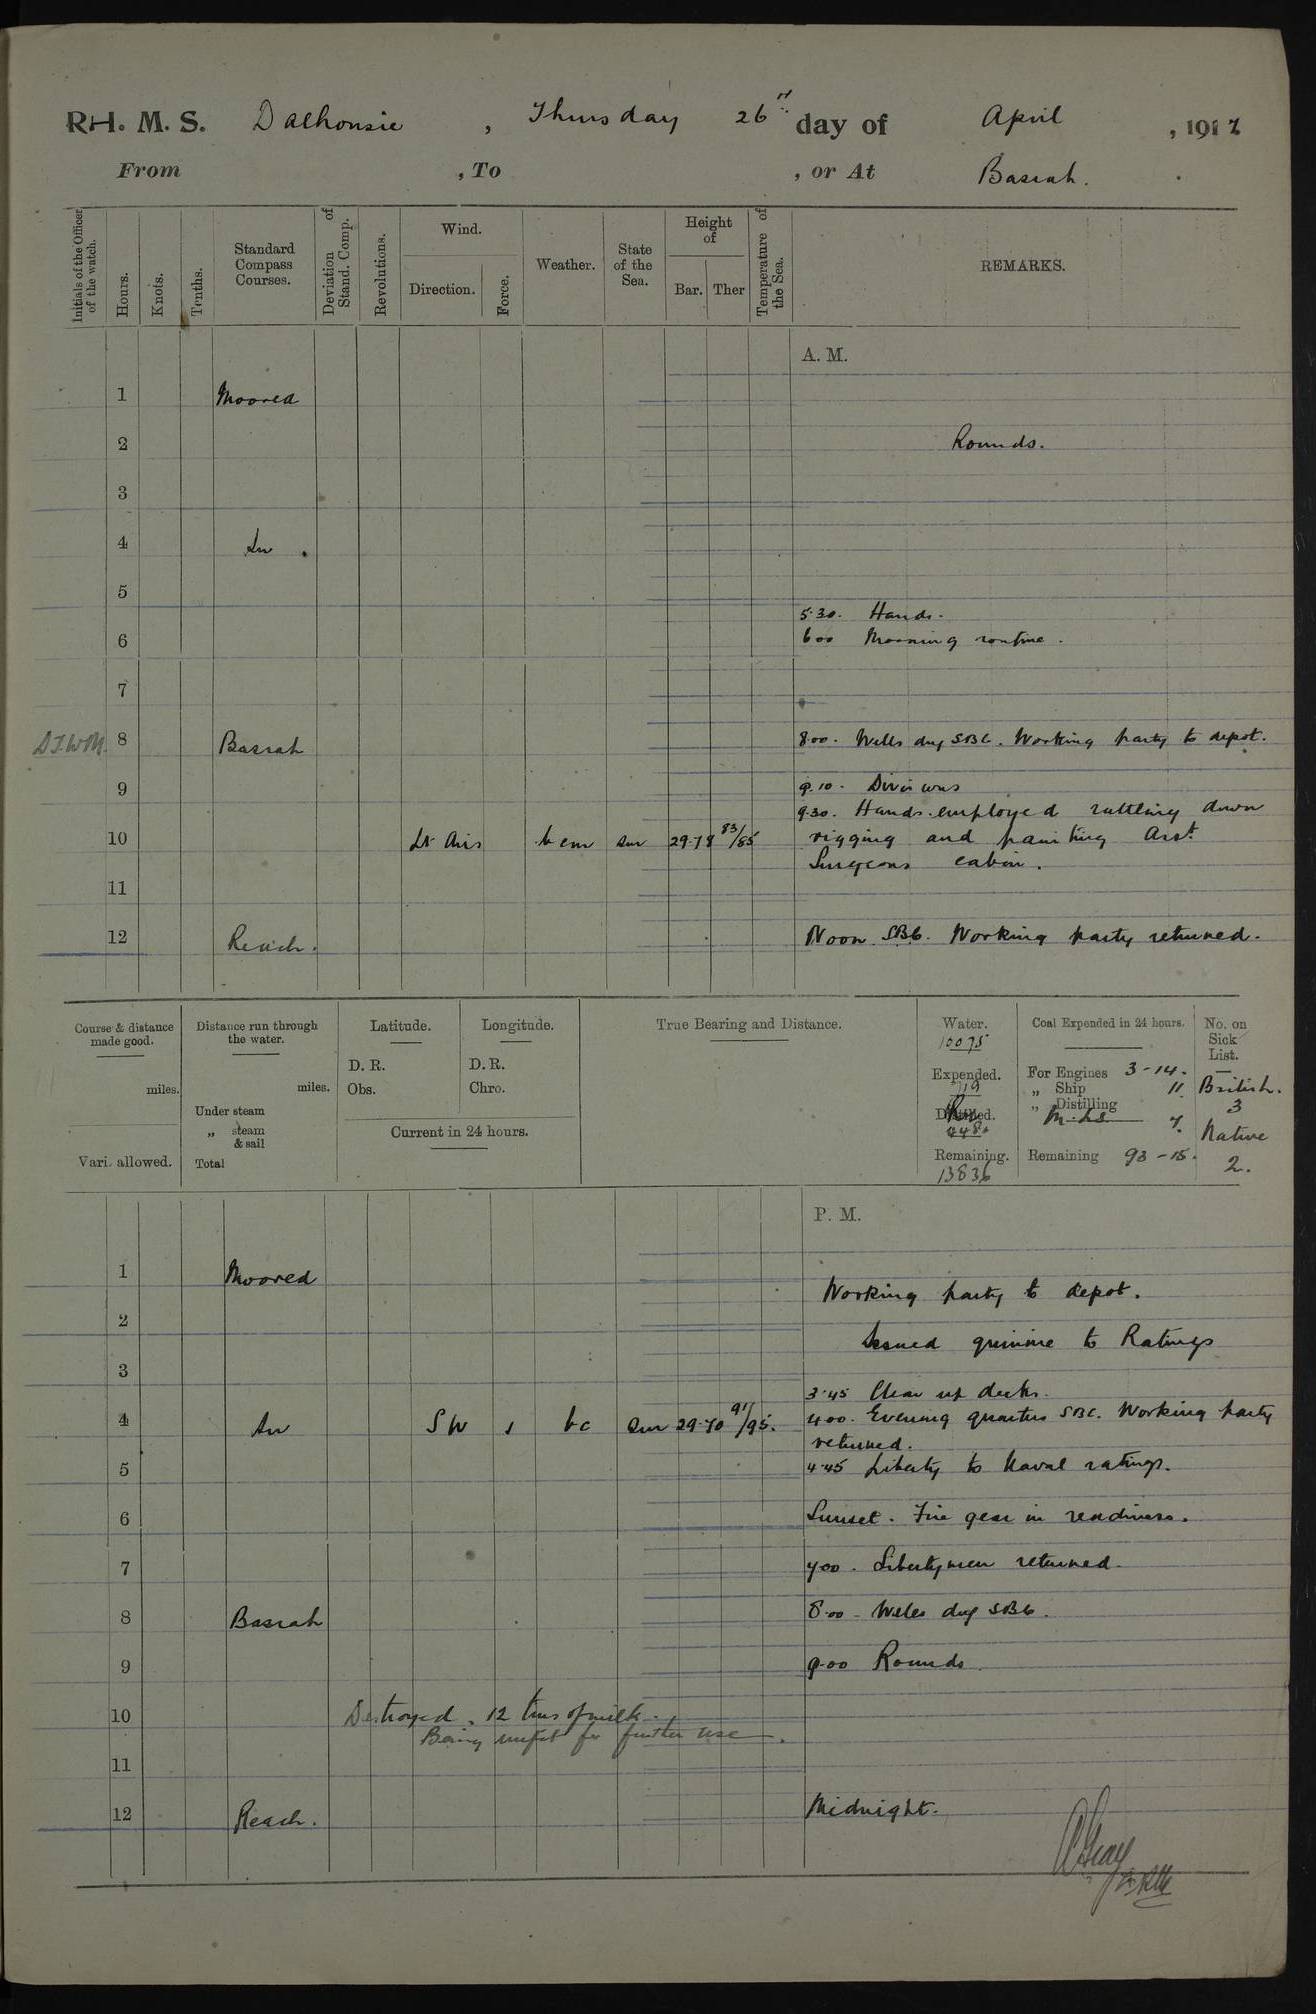 R.H.M.S. Dalhousie, Thursday 26th day of April, 1917
From , To , or At Basrah.
Initials of the Officer of the watch. Hours. Knots. Tenths. Standard Compass Courses. Deviation of Stand. Comp. Revolutions. Wind. Direction. Force. Weather. State of the Sea. Height of Bar. Ther Temperature of the Sea. REMARKS.
A. M.
1 Moored
2 Rounds.
3
4 In
5
5.30. Hands.
6 6.00 Morning routine.
7
8 Basrah 8.00. Wells dug SBC. Working party to depot.
9 9.10. Divisions
9.30. Hands employed rattling down
10 Lt Airs bcm Sm 29.78 83/85 rigging and painting Asst.
Surgeons cabin.
11
12 Reach. Noon SBC. Working party returned.
Course & distance made good.
miles.
Vari. allowed.
Distance run through the water.
miles.
Under steam
„ steam & sail
Total
Latitude.
D. R.
Obs.
Longitude.
D. R.
Chro.
Current in 24 hours.
True Bearing and Distance.
Water.
10075
Expended.
719
Distilled.
Remaining.
13836
Coal Expended in 24 hours.
For Engines 3-14.
„ Ship 11
„ Distilling
7.
Remaining 93-15.
No. on Sick List.
British.
3
Native
2.
P. M.
1 Moored
Working party to depot.
2
Issued quinine to Ratings
3
3.45 Clear up decks.
4 In SW 1 bc Sm 29.70 91/95. 4.00. Evening quarters SBC. Working party
returned.
5 4.45 Liberty to Naval ratings.
6 Sunset. Fire gear in readiness.
7 7.00. Libertymen returned.
8 Basrah 8.00 - Wells dug SBC.
9 9.00 Rounds.
10 Destroyed, 12 tins of milk.
Being unfit for further use.
11
12 Reach. Midnight.